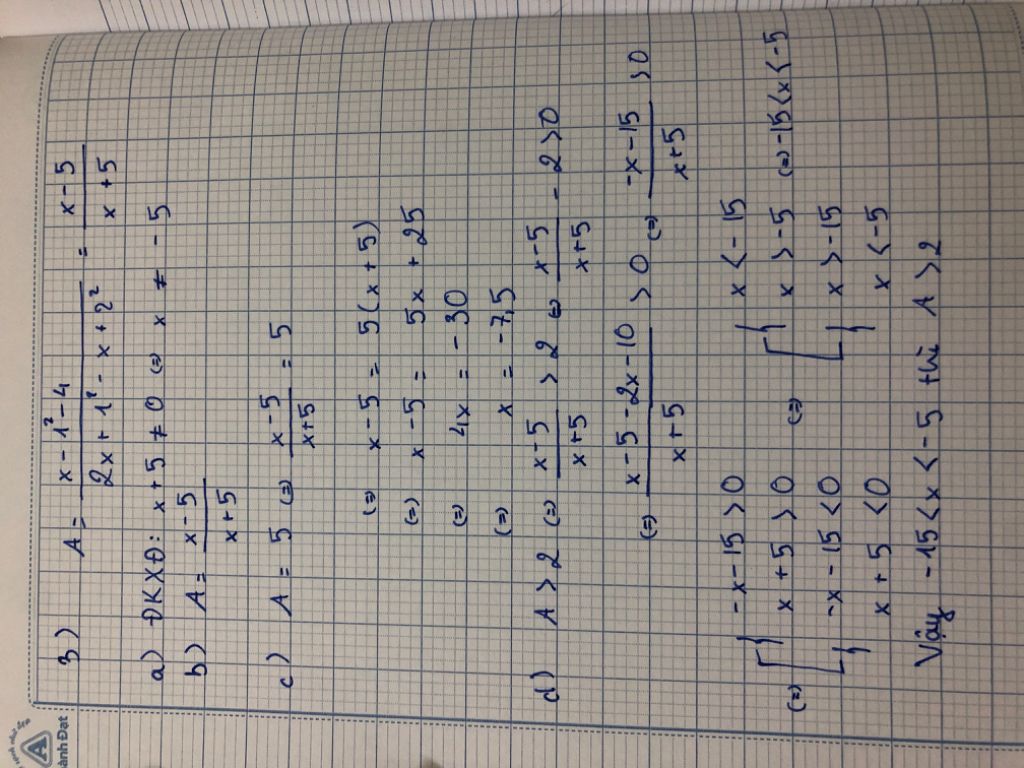 3) A = \frac{x - 1² - 4}{2x + 1² - x + 2²} = \frac{x - 5}{x + 5}
a) ĐKXĐ: x + 5 ≠ 0 (=) x ≠ - 5
b) A = \frac{x - 5}{x + 5}
c) A = 5 (=) \frac{x - 5}{x + 5} = 5
(=) x - 5 = 5(x + 5)
(=) x - 5 = 5x + 25
(=) 4x = - 30
(=) x = - 7,5
d) A > 2 (=) \frac{x - 5}{x + 5} > 2 (=) \frac{x - 5}{x + 5} - 2 > 0
(=) \frac{x - 5 - 2x - 10}{x + 5} > 0 (=) \frac{-x - 15}{x + 5} > 0
(=) [ { -x - 15 > 0 (=) [ { x < - 15
x + 5 > 0 x > -5 (=) -15 < x < -5
{ -x - 15 < 0 { x > -15
x + 5 < 0 x < -5
Vậy -15 < x < -5 thì A > 2